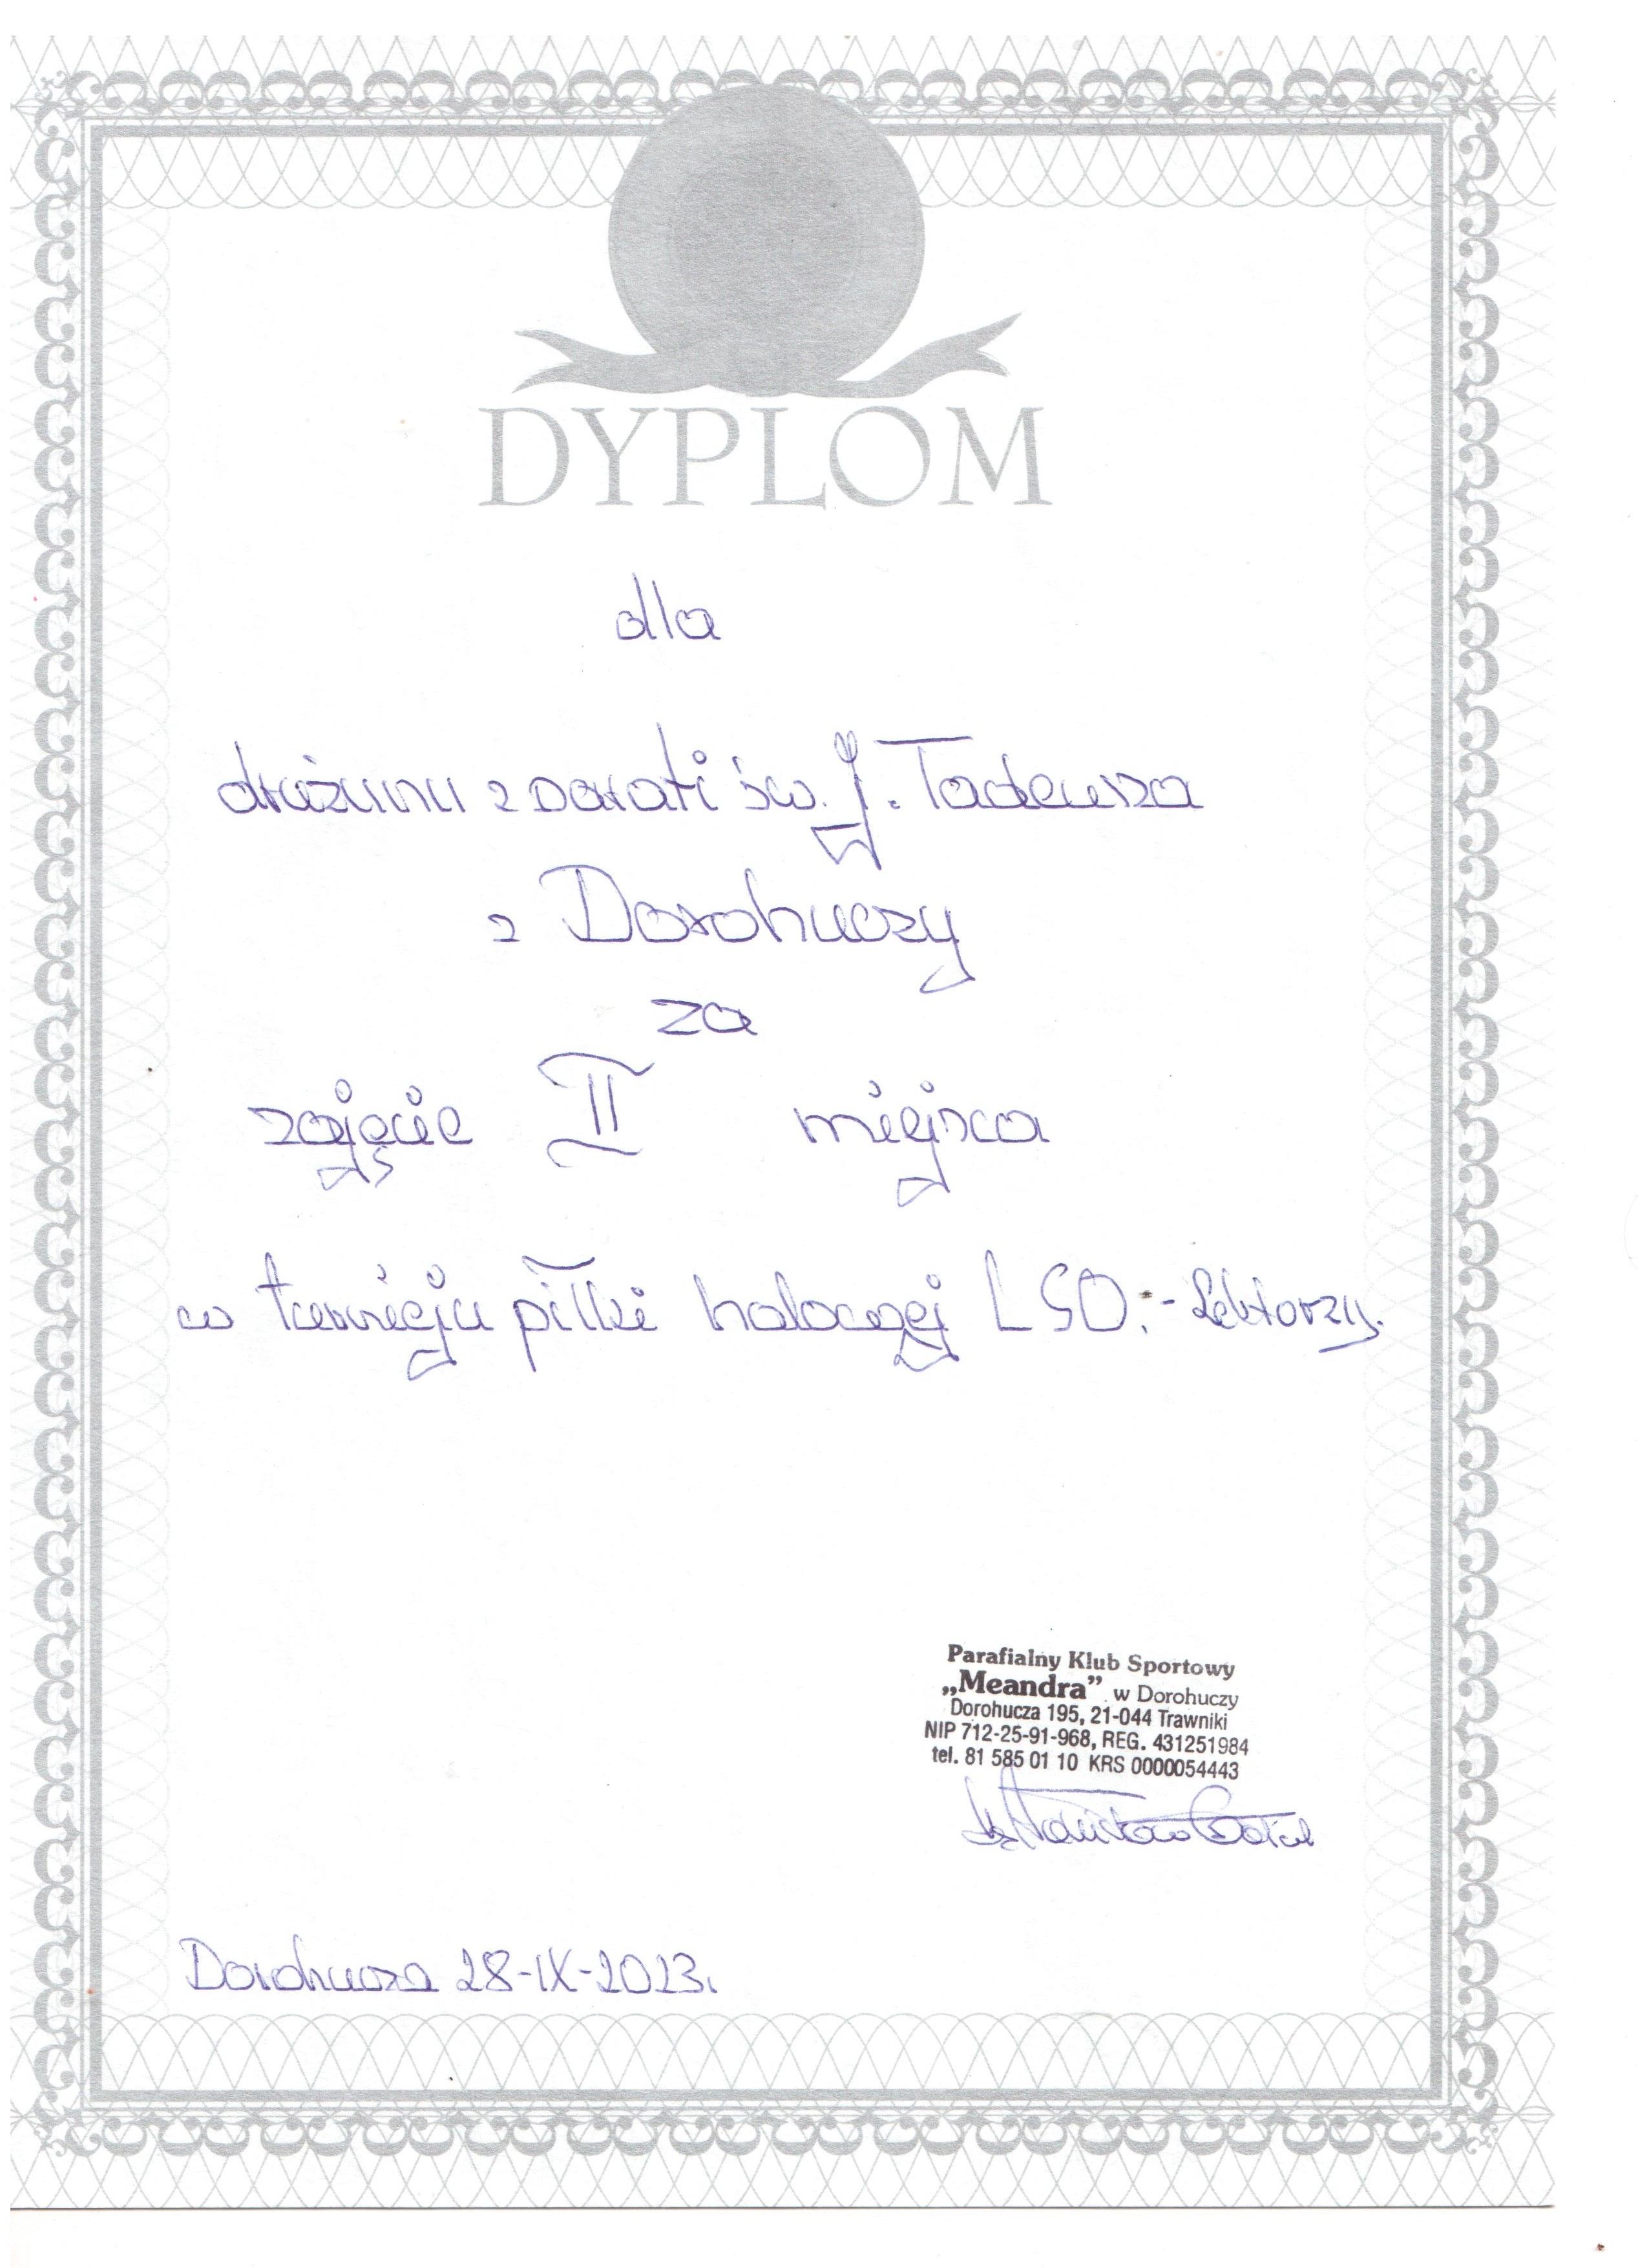 DYPLOM
dla
drużyny z parafi św. J. Tadeusza
z Dorohuczy
za
zajęcie II miejsca
w turnieju piłki halowej LSO.-Lektorzy.
Parafialny Klub Sportowy
„Meandra” w Dorohuczy
Dorohucza 195, 21-044 Trawniki
NIP 712-25-91-968, REG. 431251984
tel. 81 585 01 10 KRS 0000054443
Dorohucza 28-IX-2013.